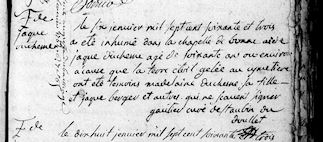 jaque
duchesne
le six janvier mil sept cent soixante et trois
a été inhumé dans la chapelle de bonne aide
jaque duchesne agé de soixante ans ou environ
a cause que la terre etoit gelée au cymetiere
ont eté temoins madelaine duchesne sa fille
et jaque bergier et autres qui ne sçavent signer
gaultier curé de staubin du
le dix huit janvier mil sept cent soixante et trois